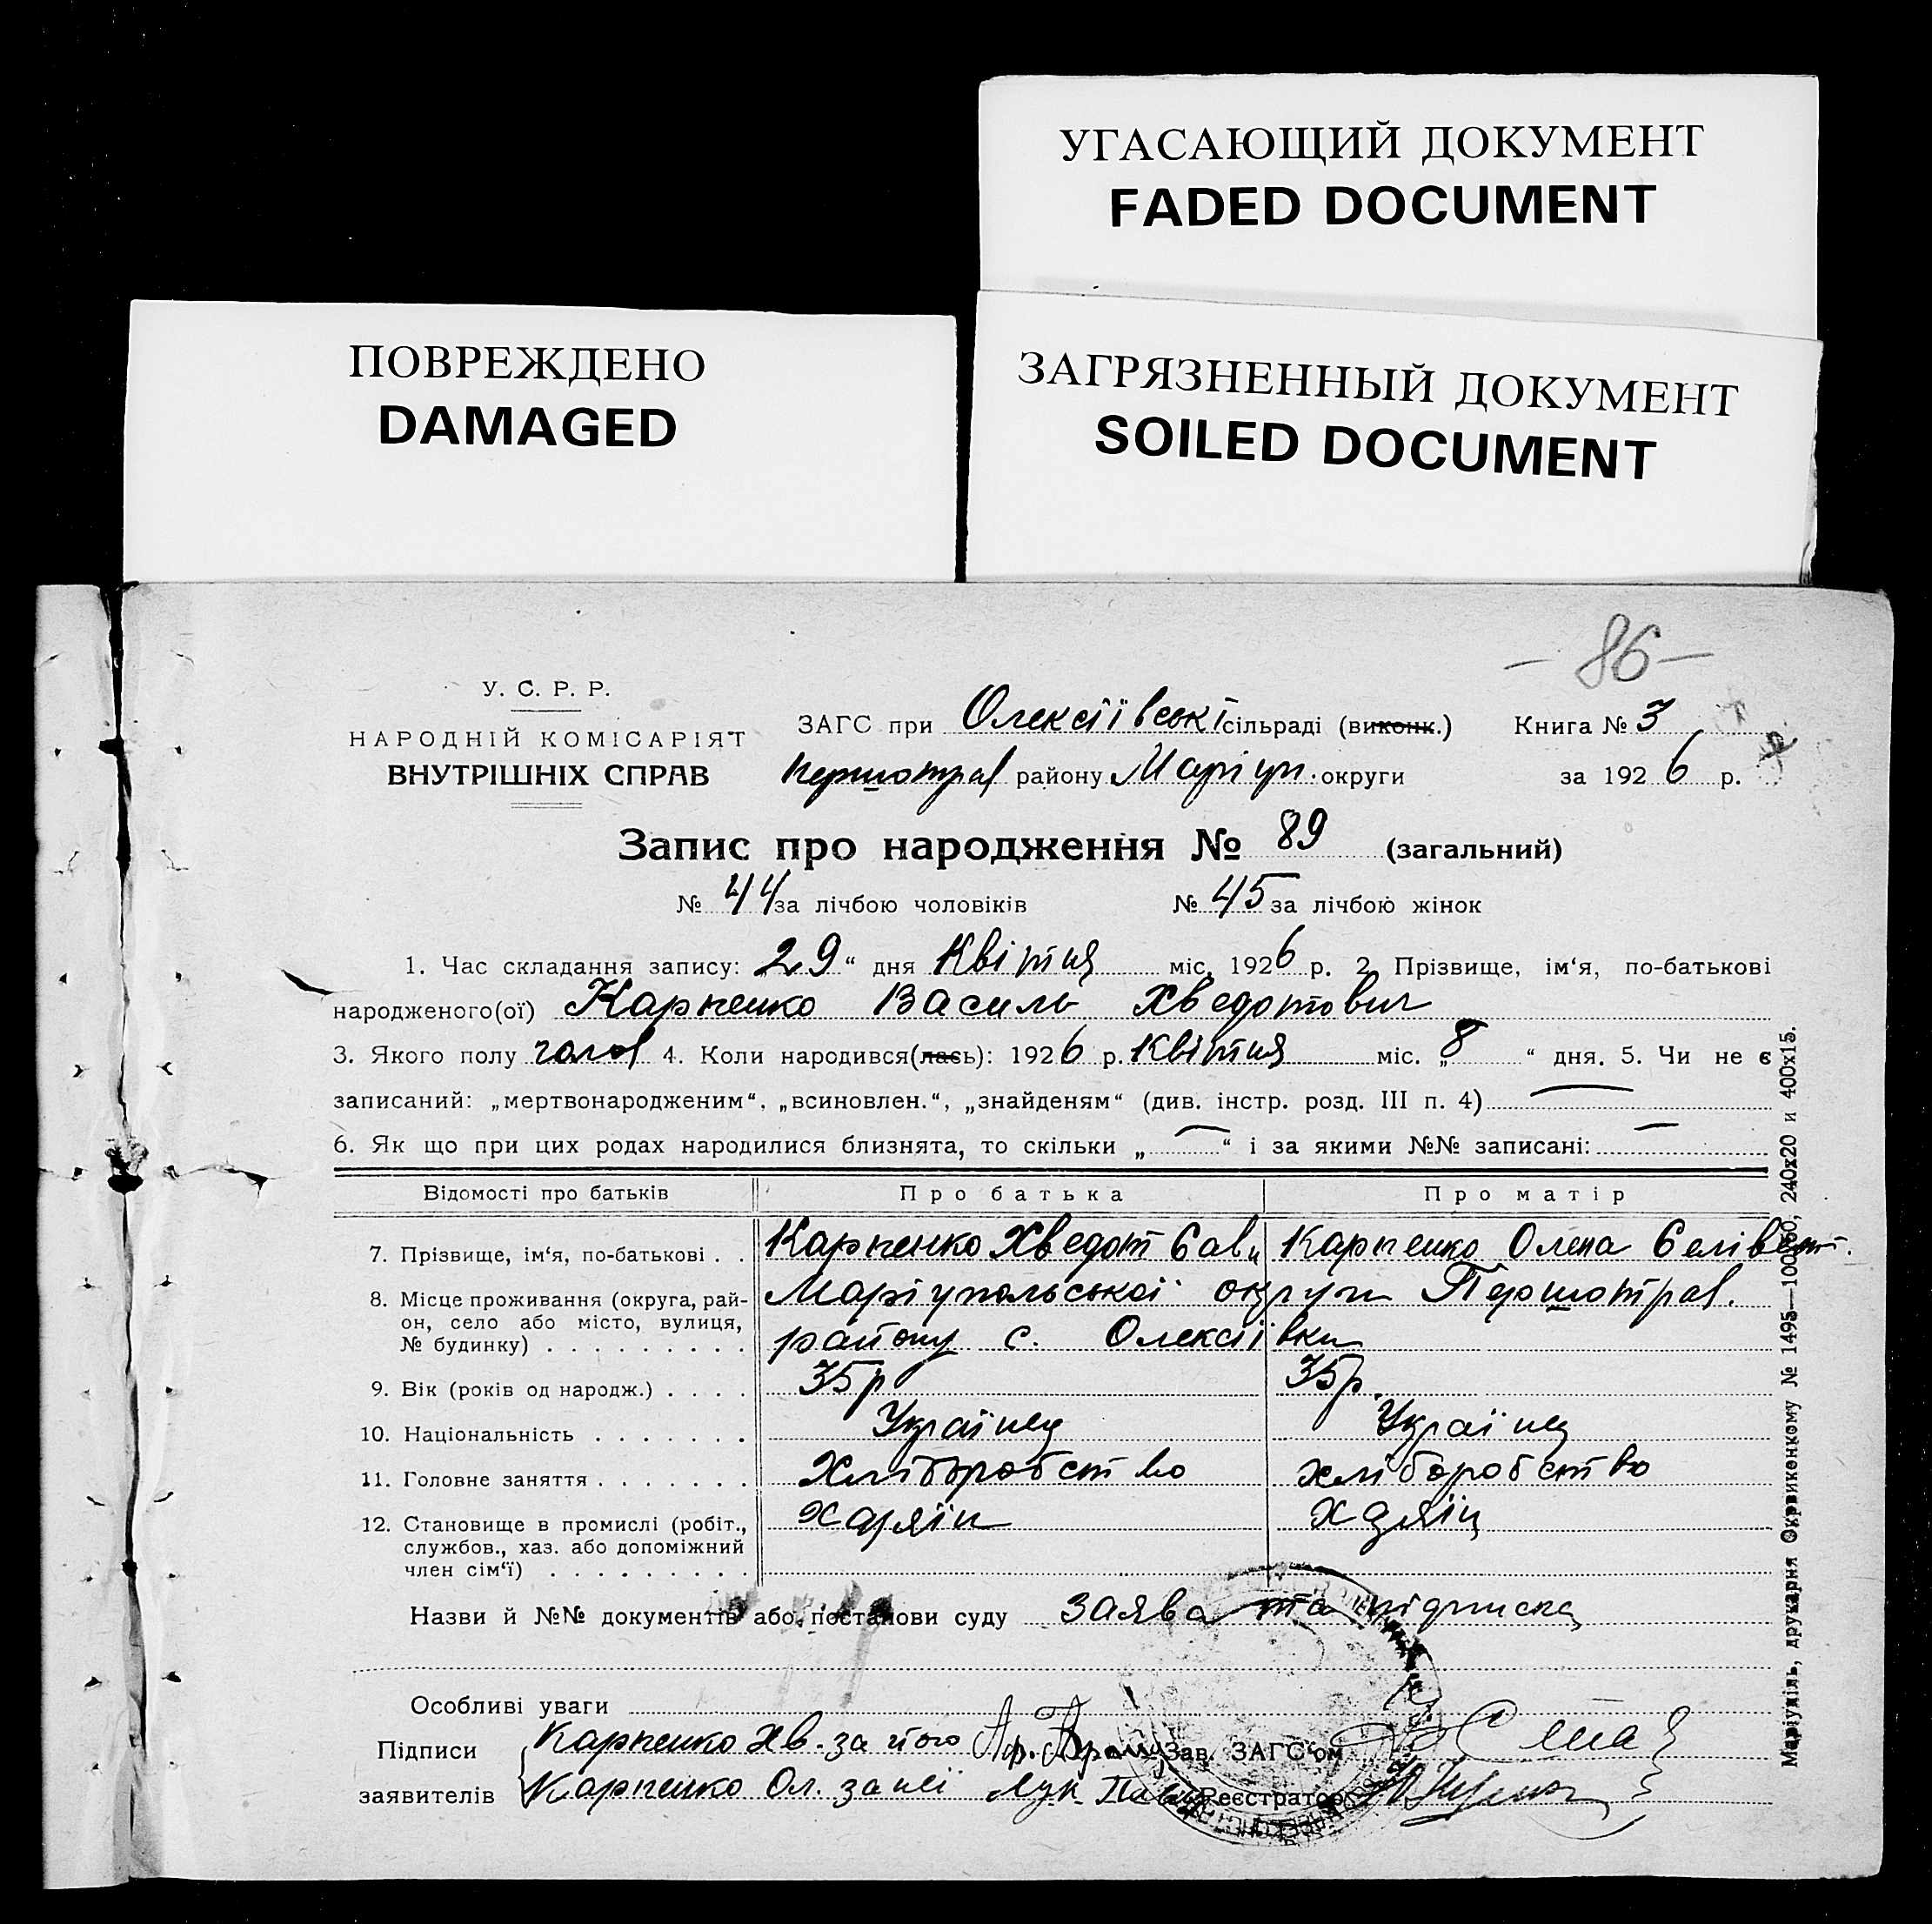 УГАСАЮЩИЙ ДОКУМЕНТ
FADED DOCUMENT
ПОВРЕЖДЕНО
DAMAGED
ЗАГРЯЗНЕННЫЙ ДОКУМЕНТ
SOILED DOCUMENT
- 86 -
У. С. Р. Р.
НАРОДНІЙ КОМІСАРІЯТ
ВНУТРІШНІХ СПРАВ
ЗАГС при Олексіївські сільраді (виконк.) Книга № 3
Першотрав району Маріуп. округи за 1926 р.
Запис про народження № 89 (загальний)
№ 44 за лічбою чоловіків № 45 за лічбою жінок
1. Час складання запису: 29 “ дня Квітня міс. 1926 р. 2. Прізвище, ім‘я, по-батькові
народженого(ої) Карпенко Василь Хведотович
3. Якого полу чолов 4. Коли народився(лась): 1926 р. Квітня міс. „ 8 “ дня. 5. Чи не є
записаний: „мертвонародженим“, „всиновлен.“, „знайденям“ (див. інстр. розд. III п. 4) —
6. Як що при цих родах народилися близнята, то скільки „ — “ і за якими №№ записані: —
Відомості про батьків Про батька Про матір
7. Прізвище, ім‘я, по-батькові . . Карпенко Хведот Сави Карпенко Олена Селіверт.
8. Місце проживання (округа, рай- Маріупольської округи Першотрав.
он, село або місто, вулиця,
№ будинку) . . . . . . . . . району с. Олексіївки
9. Вік (років од народж.) . . . . 35 р 35 р.
10. Національність . . . . . . . Українец Українец
11. Головне заняття . . . . . . . Хліборобство хліборобство
12. Становище в промислі (робіт., хазяїн хазяїн
службов., хаз. або допоміжний
член сім‘ї) . . . . . . . . .
Назви й №№ документів або постанови суду заява та підписка
Особливі уваги
Підписи Карпенко Хв. за його Зав. ЗАГС‘ом
заявителів Карпенко Ол. за неї Лук Реєстратор
Маріупіль, друкарня Окрвиконкому № 1495—100850, 240х20 и 400х15.